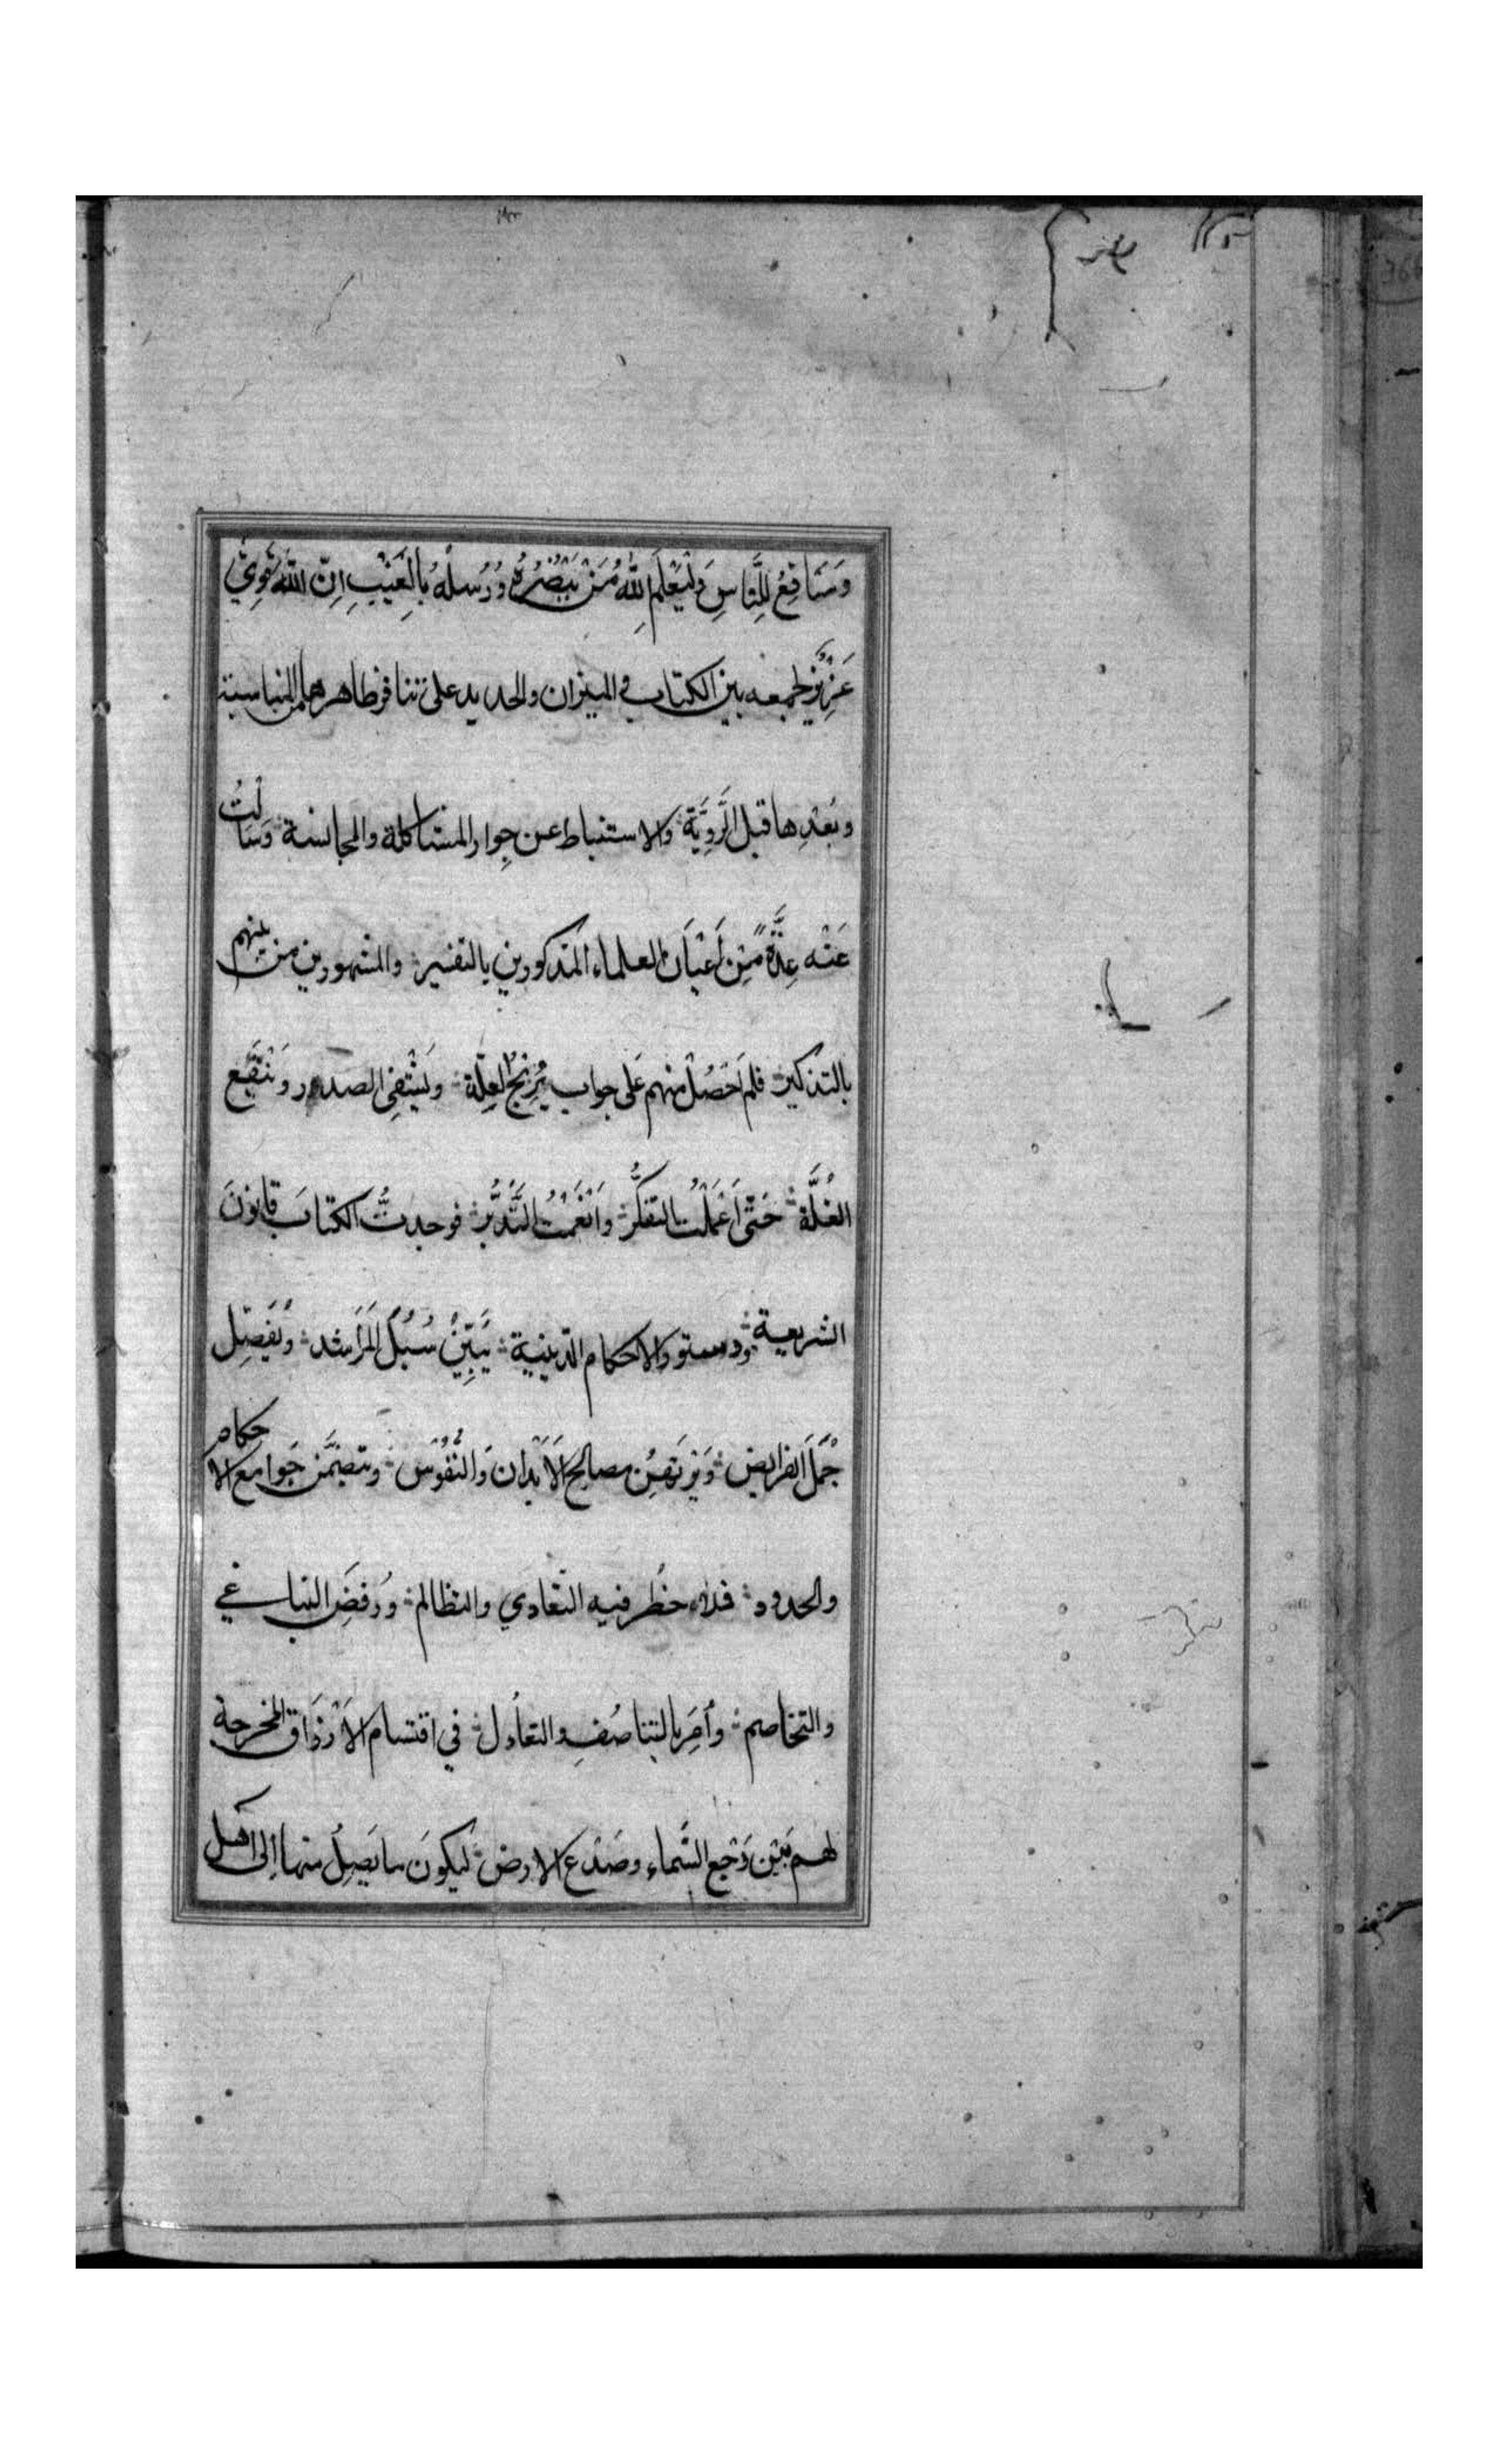 وَمَنَافِعُ لِلنَّاسِ وَلِيَعْلَمَ اللّٰهُ مَنْ يَنْصُرُهُ وَرُسُلَهُ بِالْغَيْبِ اِنَّ اللّٰهَ قَوِيٌّ
عَزِيْزٌ لجمعه بين الكتاب و الميزان والحديد على تنافر ظاهرهما من المناسبة
وبُعْدِها قبل الرَّوِيَّة والاستنباط عن جِوار المشاكلة والمجانسة وسَالْتُ
عَنْه عِدَّةً مِّنْ اَعْيَان العلماء المذكورين بالتفسير والمشهورين من بينهم
بالتذكير فلم اَحْصُلْ منهم عَلى جواب يُزِيْحُ العِلّة ويَشْفِى الصدور ويَنْقَع
الغُلَّة حَتّى اَعْمَلْتُ التفكُّر وَاَنْعَمْتُ التَّدَبُّر فوجدتُّ الكتابَ قانونَ
الشريعة ودستور الاحكام الدّينية يُبَيِّنُ سُبُلَ المَرَاشد ويُفَصِّل
جُمَلَ الفرايض ويَرتَهِنُ مصالح الاَبْدان وَالنُّفُوْس ويتضمَّن جَوامع الاحكام
والحدود قد حظُر فيه التعَادي والتظالم ورُفِضَ التباغي
والتخاصم واُمِرَ بالتناصُفِ والتعادُل في اقتسام الاَرْزَاق المخرجة
لهم بَيْن رَجْعِ السَّماء وصَدْع الارض ليكونَ ما يَصِلُ منها اِلى اهل